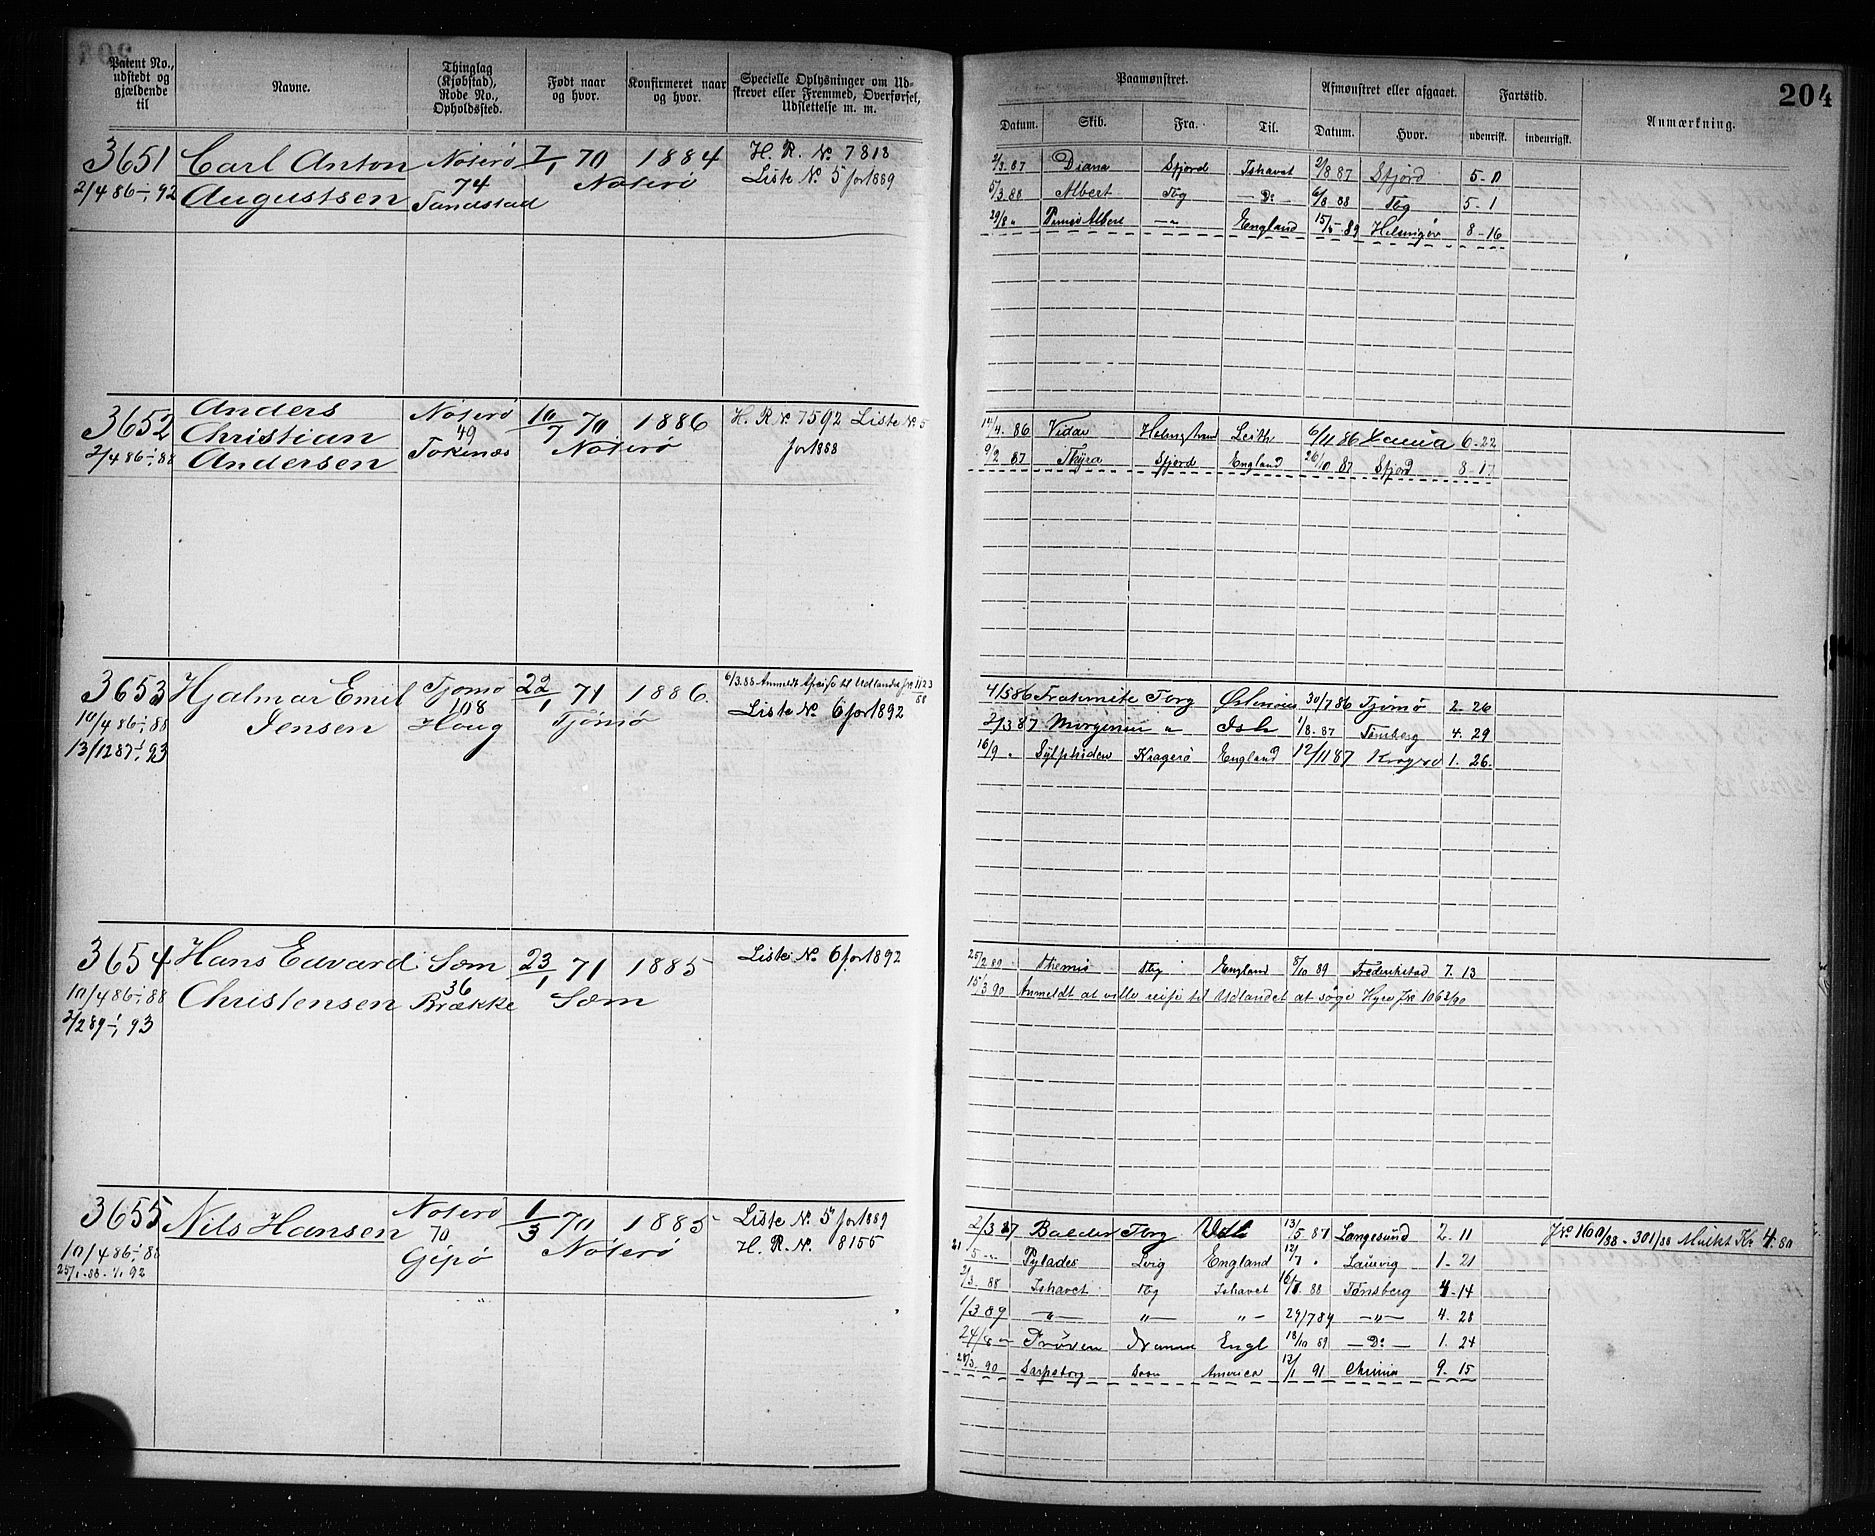 Patent No., udstedt og gjældende til
Navne.
Thinglag (Kjøbstad), Rode No., Opholdssted.
Født naar og hvor.
Konfirmeret naar og hvor.
Specielle Oplysninger om Udskrevet eller Fremmed, Overførsel, Udslettelse m. m.
Paamønstret.
Afmønstret eller afgaaet.
Fartstid.
Anmærkning.
204
Datum.
Skib.
Fra.
Til.
Datum.
Hvor.
udenrigsk.
indenrigsk.
3651 Carl Anton Nøterø 7/1 70 1884 H. R. No 7818
2/4 86-1/1 92 Augustsen 74 Nøterø Liste No 5 for 1889
2/3.87 Diana Sfjord Ishavet 2/8 87 Sfjord 5-0
5/3.88 Albert Tbg - Do - 6/8 88 Tbg 5-1
29/8 " Albert -"- England 89 Helsingør 8-16
3652 Anders Nøterø 10/7 70 1886 H. R. No 7592 Liste No 5
Christian 49 Nøterø for 1888
2/4 86-1/1 88 Andersen
14/4. 86 Vidar Leith 6/11 86 6-22
9/2 87 Thyra Sfjord England 26/10 87 Sfjord 8-17
3653 Hjalmar Emil Tjømø 22/1 71 1886. 6/3.88 Anmeldt
10/4 86-1/1 88 Jensen 108 Haug Tjømø Liste No 6 for 1892
13/12 87-1/1 93
4/5 86 Tbrg 30/7 86 Tjømø 2. 26
2/3 87 " Ish 1/8.87 Tønsberg 4. 29
16/9 " Sylphiden Kragerø England 12/11 87 Kragerø 1. 26.
3654 Hans Edvard Sæm 23/1 71 1885 Liste No 6 for 1892
10/4 86-1/1 88 Christensen 36 Brække Sæm
2/2 89-1/1 93
25/2 89 Themis Tbg England 8/10 89 Frederikstad 7. 13
15/3 90 Anmeldt at ville reise til Udlandet at søge Hyre Jno 1062/90
3655 Nils Hansen Nøterø 1/3 70 1885 Liste No 5 for 1889
10/4 86-1/1 88 70 Gipø Nøterø H. R. No 8155
25/1.88-1/1 92
2/3 87 Balder Tbrg Ish 13/5 87 Langesund 2. 11 Jno 160/88 - 301/88 Mulkt Kr 4.80
21/5 - " Pylades Lvig England 12/7 " Laurvig 1. 21
2/3. 88 Ishavet Tbg Ishavet 16/7 88 Tønsberg 4-14
1/3 89 -"- "- "- 29/7 89 -"- 4. 28
24/8 - Prøven Engl 18/10 89 - Do - 1. 24
90 Sarpsborg America 12/1 91 9. 15